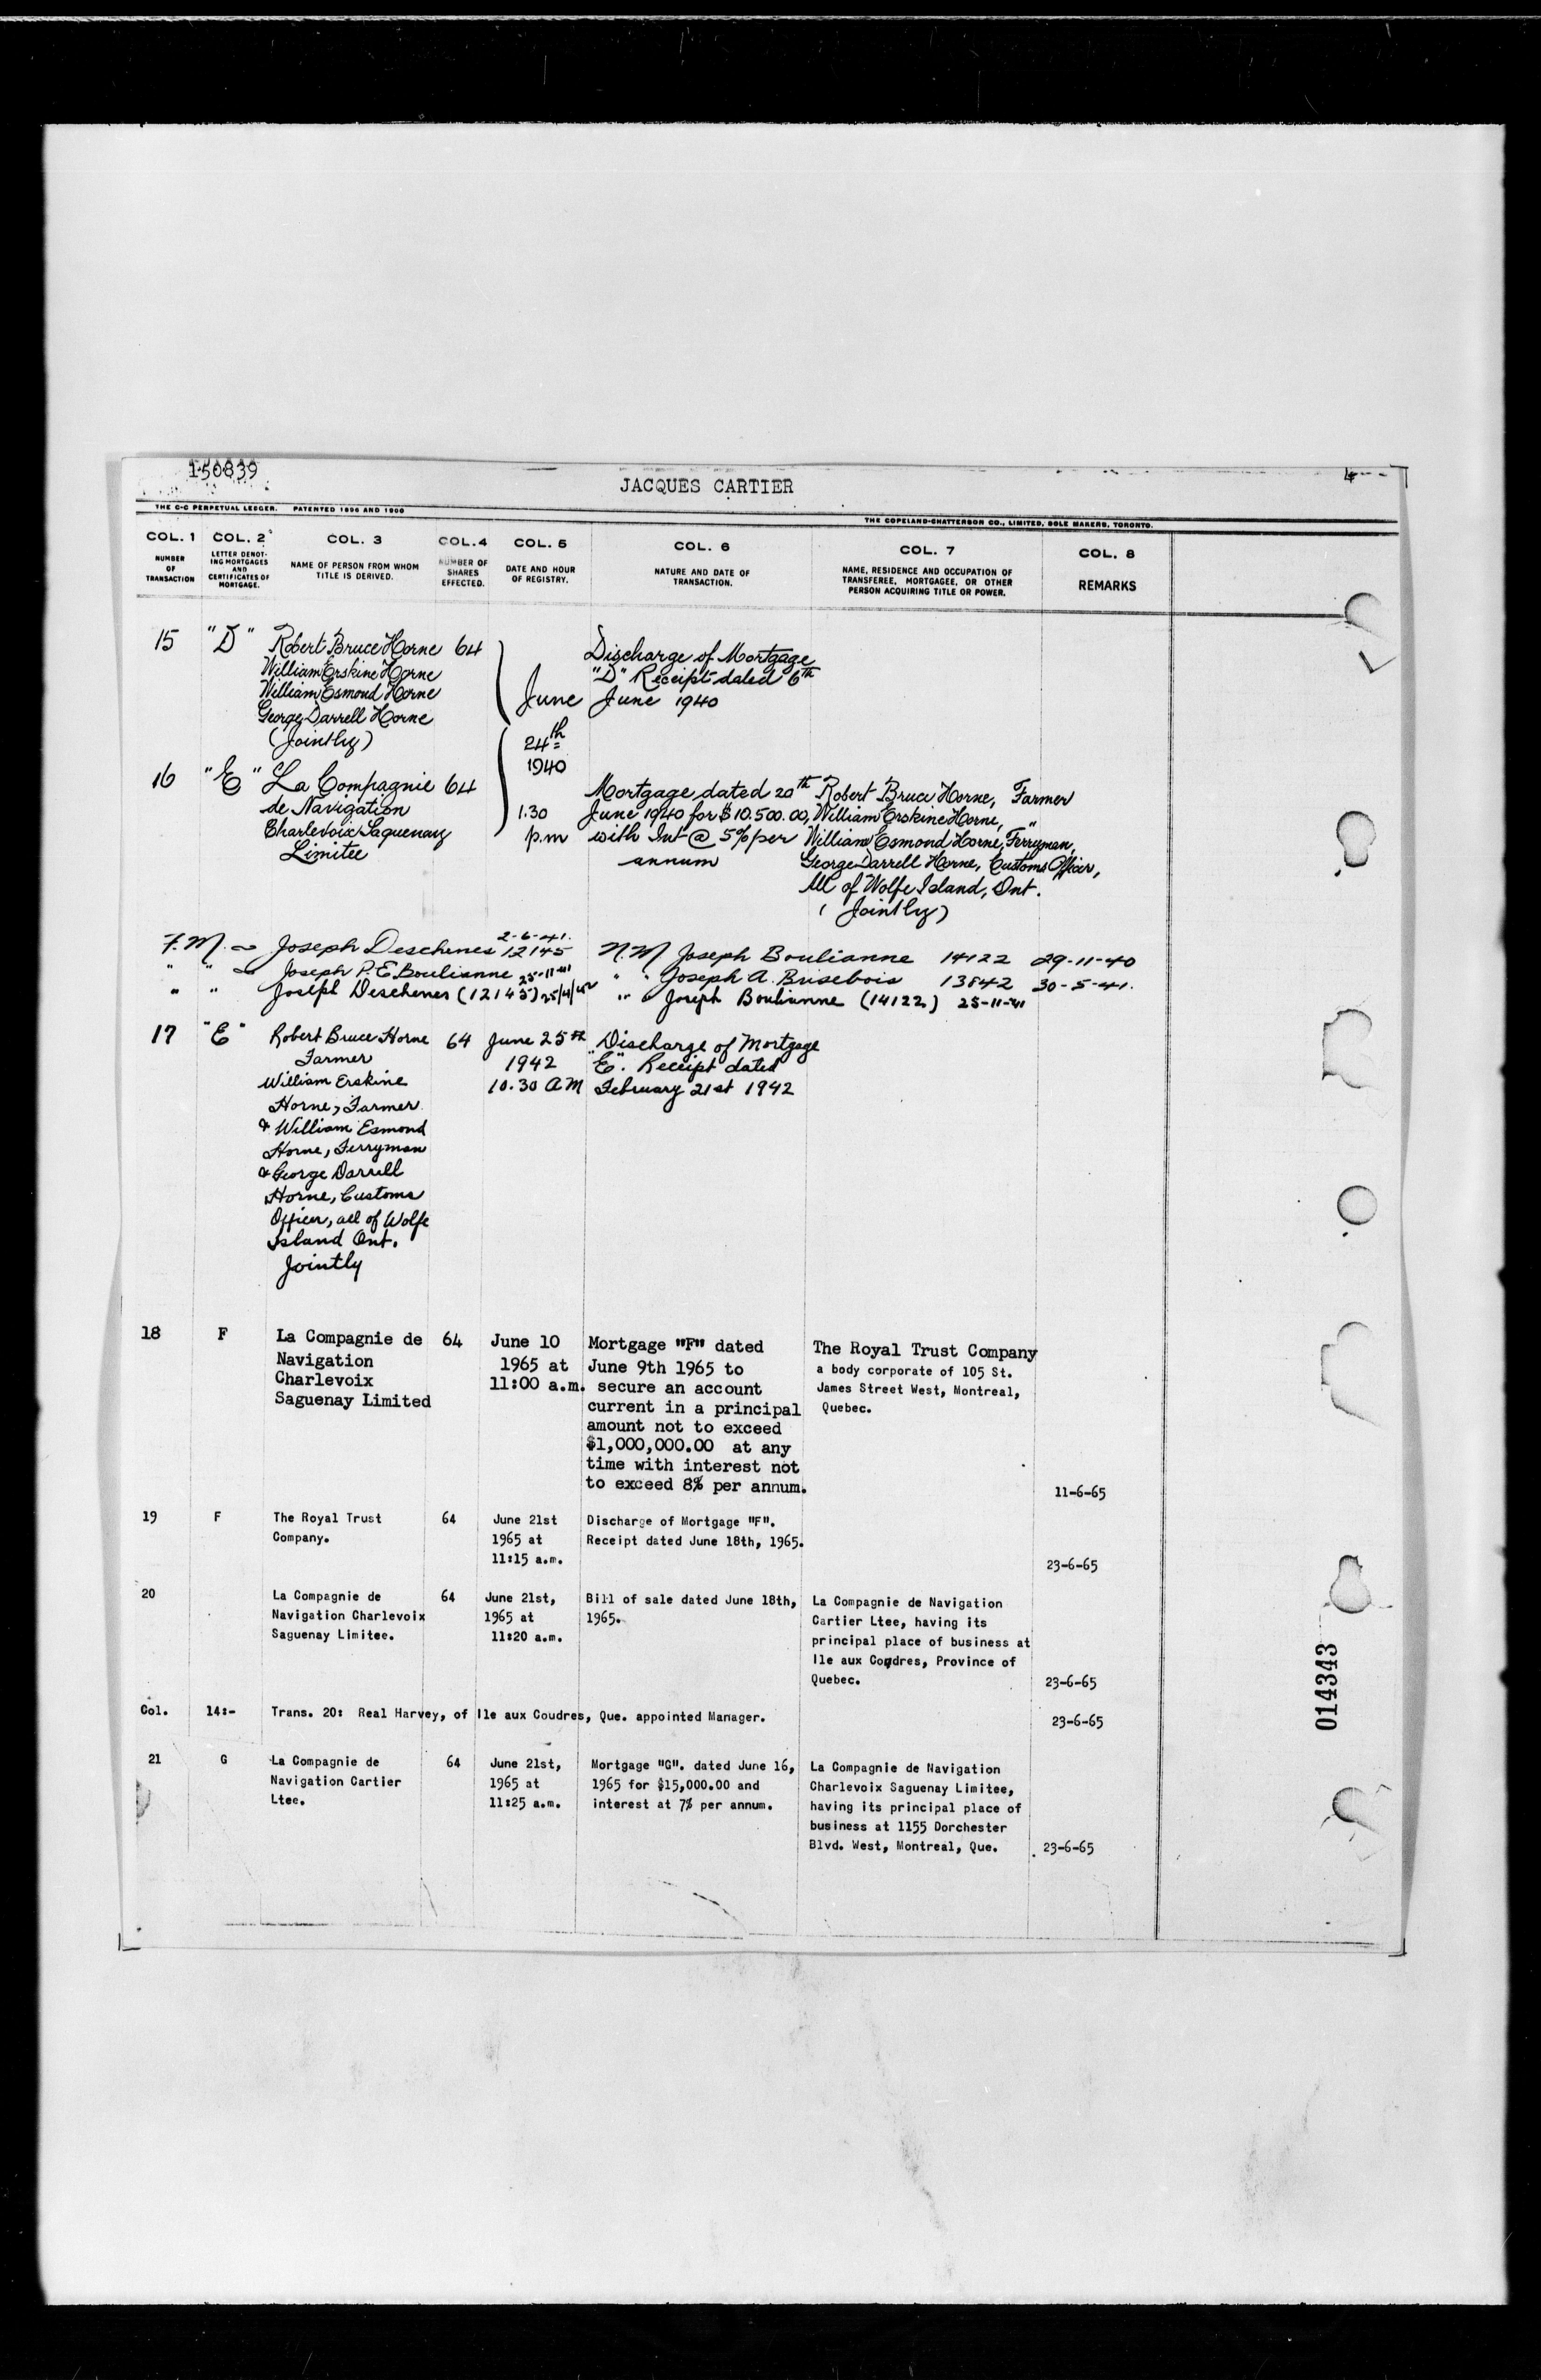 150839
JACQUES CARTIER
4
THE C-C PERPETUAL LEDGER. PATENTED 1896 AND 1900
THE COPELAND-CHATTERSON CO., LIMITED, SOLE MAKERS, TORONTO.
COL. 1 COL. 2 COL. 3 COL. 4 COL. 5 COL. 6 COL. 7 COL. 8
NUMBER OF TRANSACTION
LETTER DENOT-ING MORTGAGES AND CERTIFICATES OF MORTGAGE.
NAME OF PERSON FROM WHOM TITLE IS DERIVED.
NUMBER OF SHARES EFFECTED.
DATE AND HOUR OF REGISTRY.
NATURE AND DATE OF TRANSACTION.
NAME, RESIDENCE AND OCCUPATION OF TRANSFEREE, MORTGAGEE, OR OTHER PERSON ACQUIRING TITLE OR POWER.
REMARKS
15 "D" Robert Bruce Horne 64
William Erskine Horne
William Esmond Horne
George Darrell Horne
(Jointly)
June
24th
1940
1.30
p.m
Discharge of Mortgage
"D" Receipt dated 6th
June 1940
16 "E" La Compagnie 64
de Navigation
Charlevoix Saguenay
Limitee
Mortgage dated 20th
June 1940 for $10.500.00,
with Int @ 5% per
annum
Robert Bruce Horne, Farmer
William Erskine Horne, "
William Esmond Horne, Ferryman,
George Darrell Horne, Customs Officer,
All of Wolfe Island, Ont.
(Jointly)
F.M. Joseph Deschenes 12145 2-6-41. N.M Joseph Boulianne 14122 29-11-40
" " Joseph P. E. Boulianne 25-11-41 " " Joseph A. Brisebois 13842 30-5-41.
" " Joseph Deschenes (12145) 25/4/42 " " Joseph Boulianne (14122) 25-11-41
17 "E" Robert Bruce Horne 64
Farmer
William Erskine
Horne, Farmer
& William Esmond
Horne, Ferryman
& George Darrell
Horne, Customs
Officer, all of Wolfe
Island Ont.
Jointly
June 25th
1942
10.30 AM
Discharge of Mortgage
"E". Receipt dated
February 21st 1942
18 F La Compagnie de 64
Navigation
Charlevoix
Saguenay Limited
June 10
1965 at
11:00 a.m.
Mortgage "F" dated
June 9th 1965 to
secure an account
current in a principal
amount not to exceed
$1,000,000.00 at any
time with interest not
to exceed 8% per annum.
The Royal Trust Company
a body corporate of 105 St.
James Street West, Montreal,
Quebec.
11-6-65
19 F The Royal Trust 64
Company.
June 21st
1965 at
11:15 a.m.
Discharge of Mortgage "F".
Receipt dated June 18th, 1965.
23-6-65
20 La Compagnie de 64
Navigation Charlevoix
Saguenay Limitee.
June 21st,
1965 at
11:20 a.m.
Bill of sale dated June 18th,
1965.
La Compagnie de Navigation
Cartier Ltee, having its
principal place of business at
Ile aux Coudres, Province of
Quebec.
23-6-65
Col. 14:- Trans. 20: Real Harvey, of Ile aux Coudres, Que. appointed Manager. 23-6-65
21 G La Compagnie de 64
Navigation Cartier
Ltee.
June 21st,
1965 at
11:25 a.m.
Mortgage "G". dated June 16,
1965 for $15,000.00 and
interest at 7% per annum.
La Compagnie de Navigation
Charlevoix Saguenay Limitee,
having its principal place of
business at 1155 Dorchester
Blvd. West, Montreal, Que.
23-6-65
014343